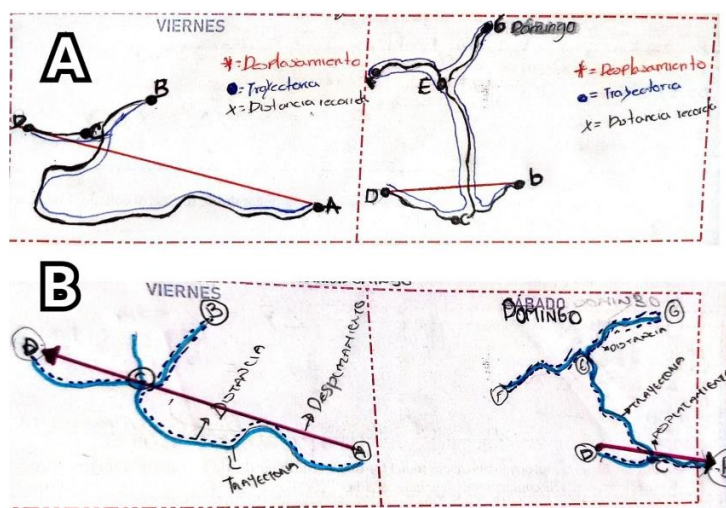 A
VIERNES
* = Desplasamiento
● = Trayectoria
x = Distancia recorrida
B
D
C
A
G
Domingo
* = Desplasamiento
● = Trayectoria
x = Distancia recorrida
F
E
D
b
C
B
VIERNES
B
D
C
DISTANCIA
DESPLAZAMIENTO
TRAYECTORIA
A
SÁBADO DOMINGO
DOMINGO
G
DISTANCIA
E
F
TRAYECTORIA
DESPLAZAMIENTO
D
C